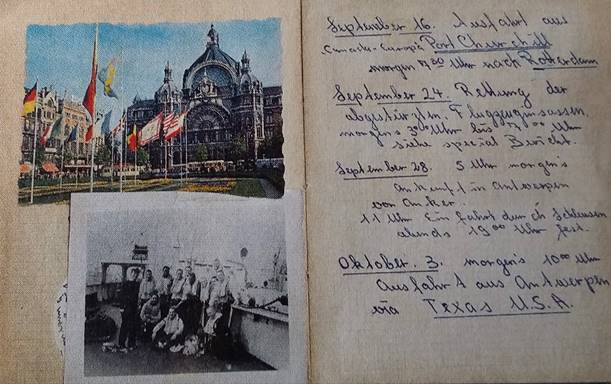 September 16. Ausfahrt aus
(Canada-Europa) Port Churchill
morgen 7 30 Uhr nach Rotterdam
September 24. Rettung der
abgestürzten Flugzeuginsassen.
morgens 3 00 Uhr bis 7 00 Uhr
siehe special Bericht.
September 28. 5 Uhr morgens
Ankunft in Antwerpen
vor Anker.
11 Uhr Einfahrt durch Schleusen
abends 19 00 Uhr fest.
Oktober. 3. morgens 10 00 Uhr
Ausfahrt aus Antwerpen
via Texas U.S.A.